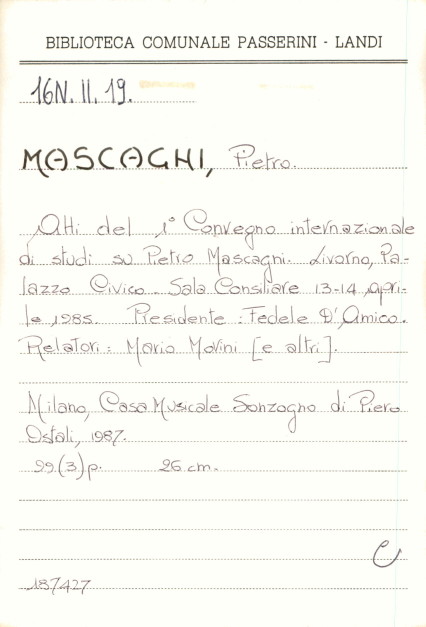 BIBLIOTECA COMUNALE PASSERINI - LANDI
16N. II. 19.
MASCAGNI, Pietro.
Atti del 1° Convegno internazionale
di studi su Pietro Mascagni. Livorno, Pa-
lazzo Civico. Sala Consiliare 13-14 Apri-
le 1985. Presidente : Fedele D'Amico.
Relatori : Mario Morini [e altri].
Milano, Casa Musicale Sonzogno di Piero
Ostali, 1987.
99 (3) p. 26 cm.
C
187427